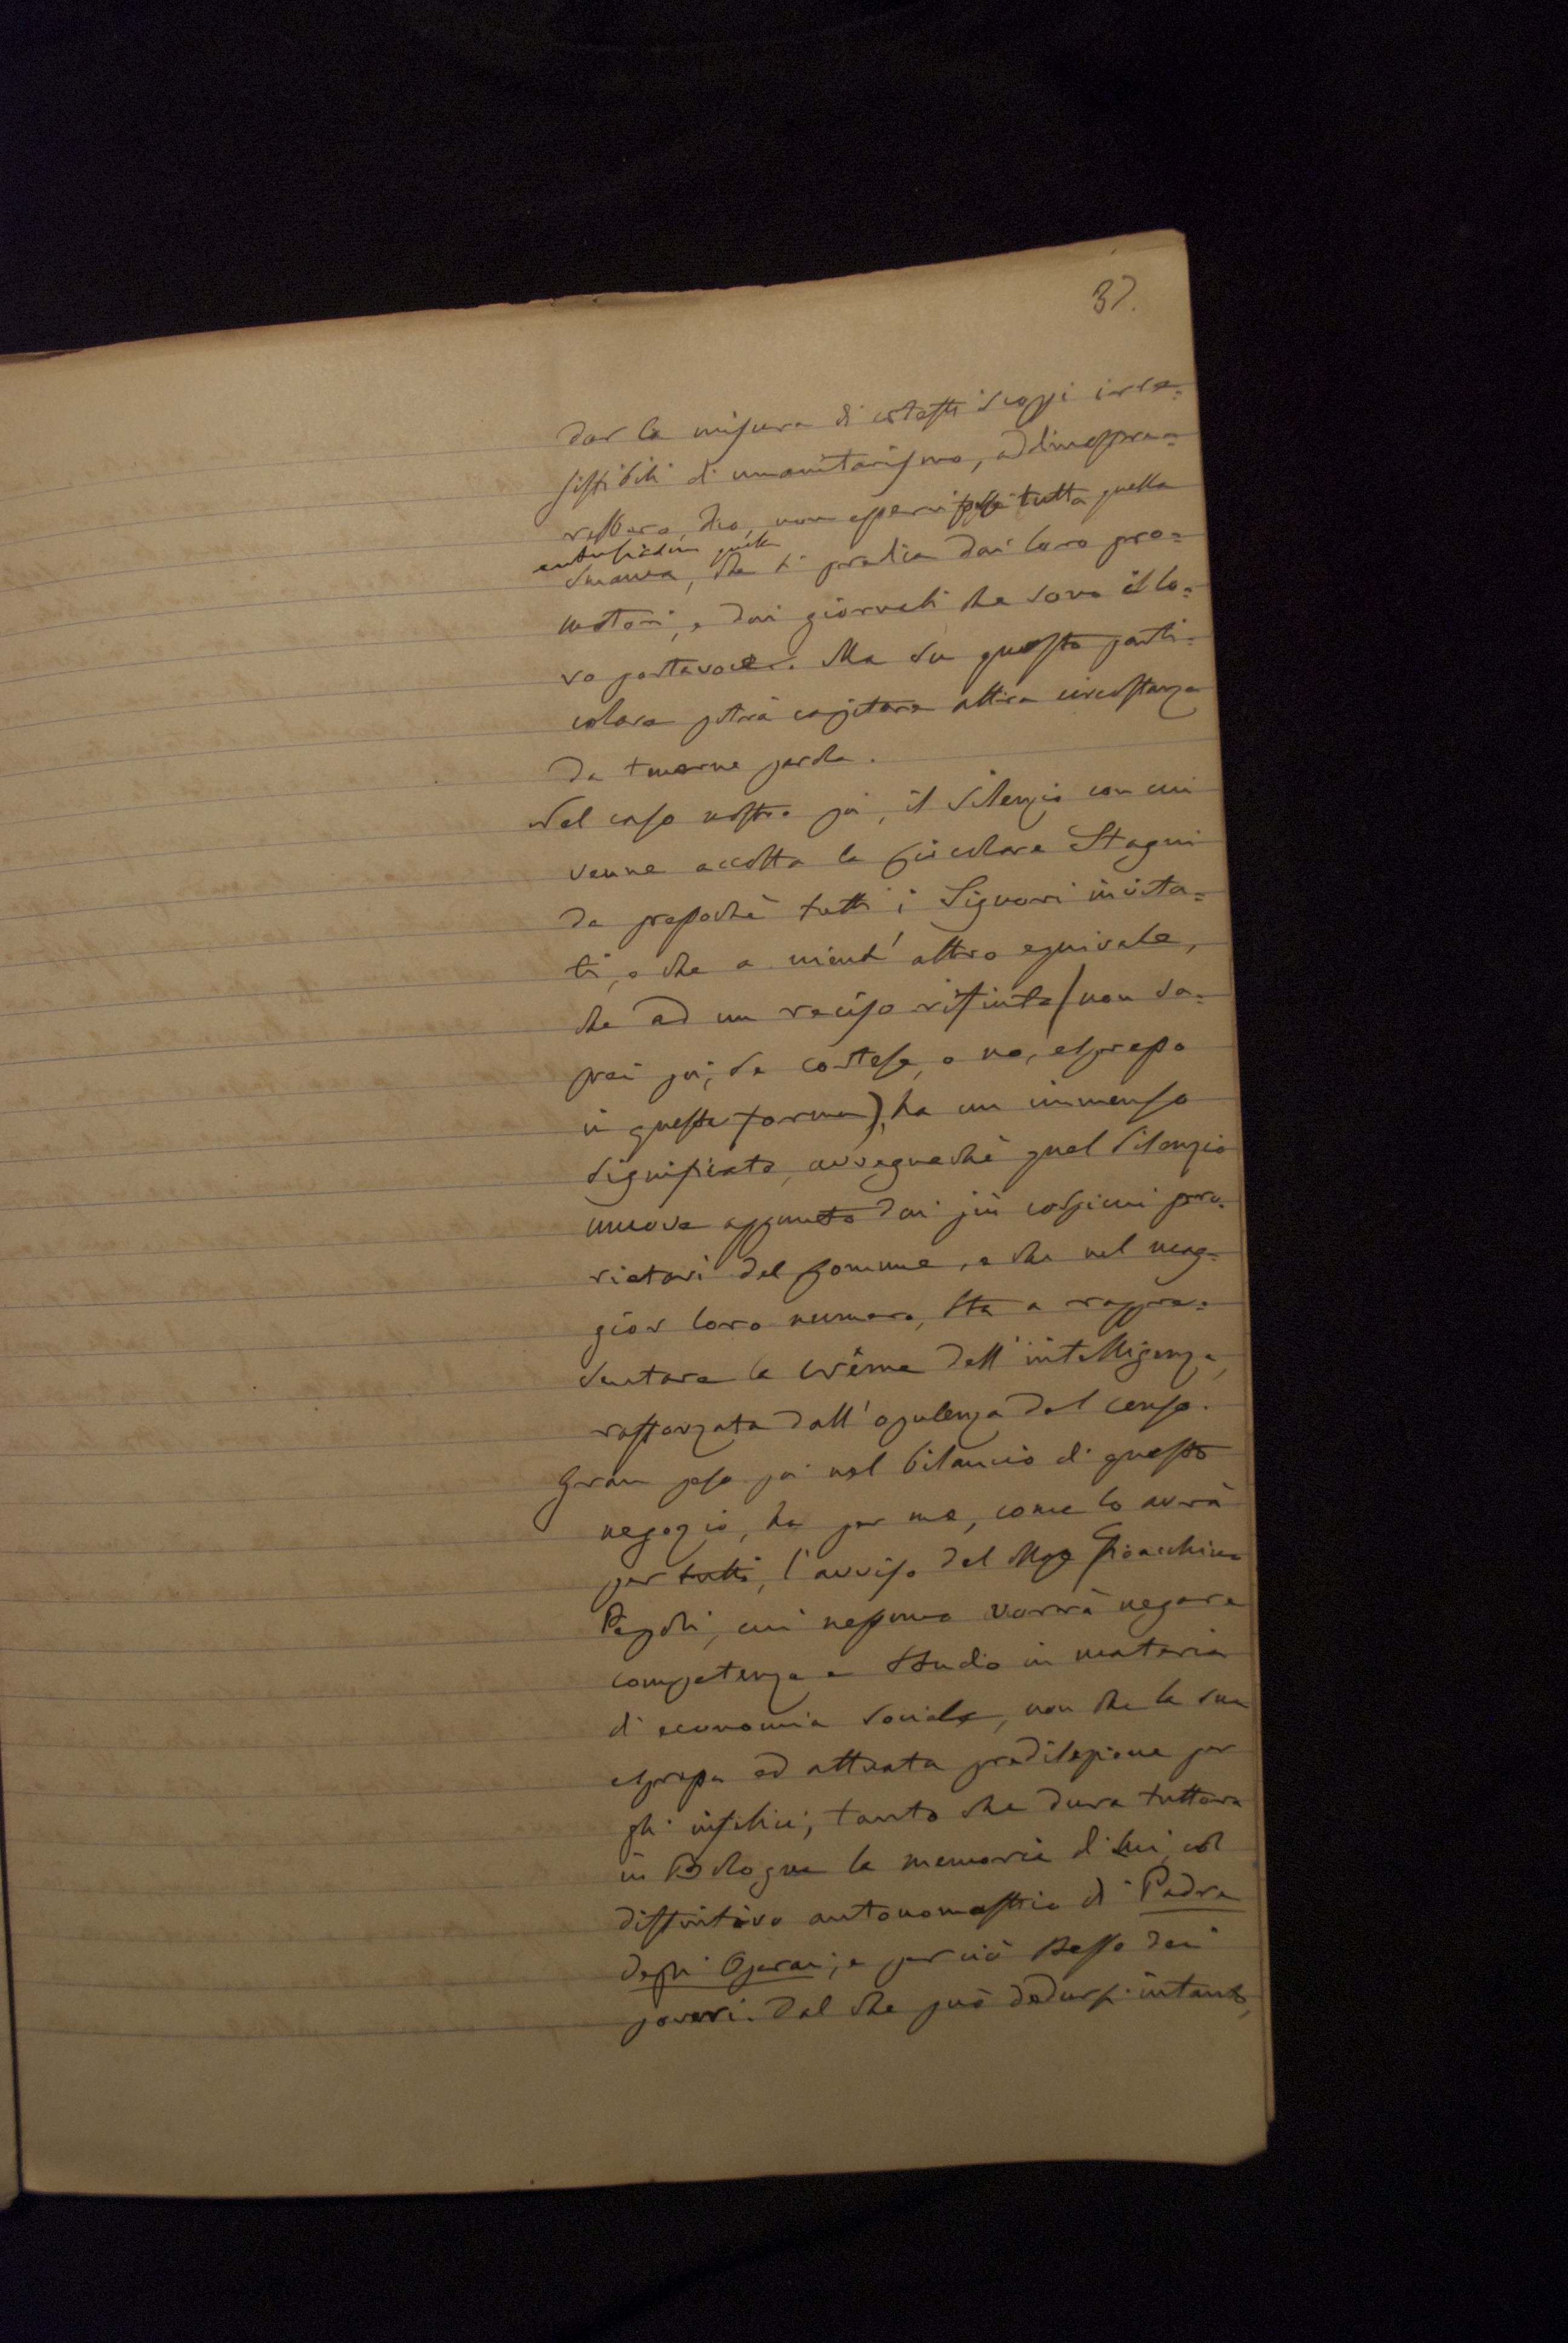 37.
dar la misura di cotesti scoppi irre=
sistibili di umanitarismo, addimostre=
rebbero, dico, non esservi poi tutta quella
entusiastica
smania, che si predica dai loro pro=
motori, e dai giornali che sono il lo=
ro portavoce. Ma su questo parti=
colare potrà capitare altra circostanza
da tenerne parola.
Nel caso nostro poi, il silenzio con cui
venne accolta la Circolare Stagni
da pressoché tutti i Signori invita=
ti, e che a nient' altro equivale,
che ad un reciso rifiuto (non sa=
prei poi, se cortese, o no, espresso
in questa forma), ha un immenso
significato, avvegnaché quel silenzio
muove appunto dai più cospicui prop=
rietari del Comune, e che nel mag=
gior loro numero, sta a rappre=
sentare la crême dell'intelligenza,
rafforzata dall'opulenza del censo.
Gran peso poi nel bilancio di questo
negozio, ha per me, come lo avrà
per tutti, l'avviso del Mse Gioacchino
Pepoli, cui nessuno vorrà negare
competenza e studio in materia
di economia sociale, non che la sua
espressa ed attuata predilezione per
gli infelici; tanto che dura tuttora
in Bologna la memoria di Lui, col
distintivo antonomastico di Padre
degli Operai, e per ciò stesso dei
poveri. Dal che può dedursi intanto,